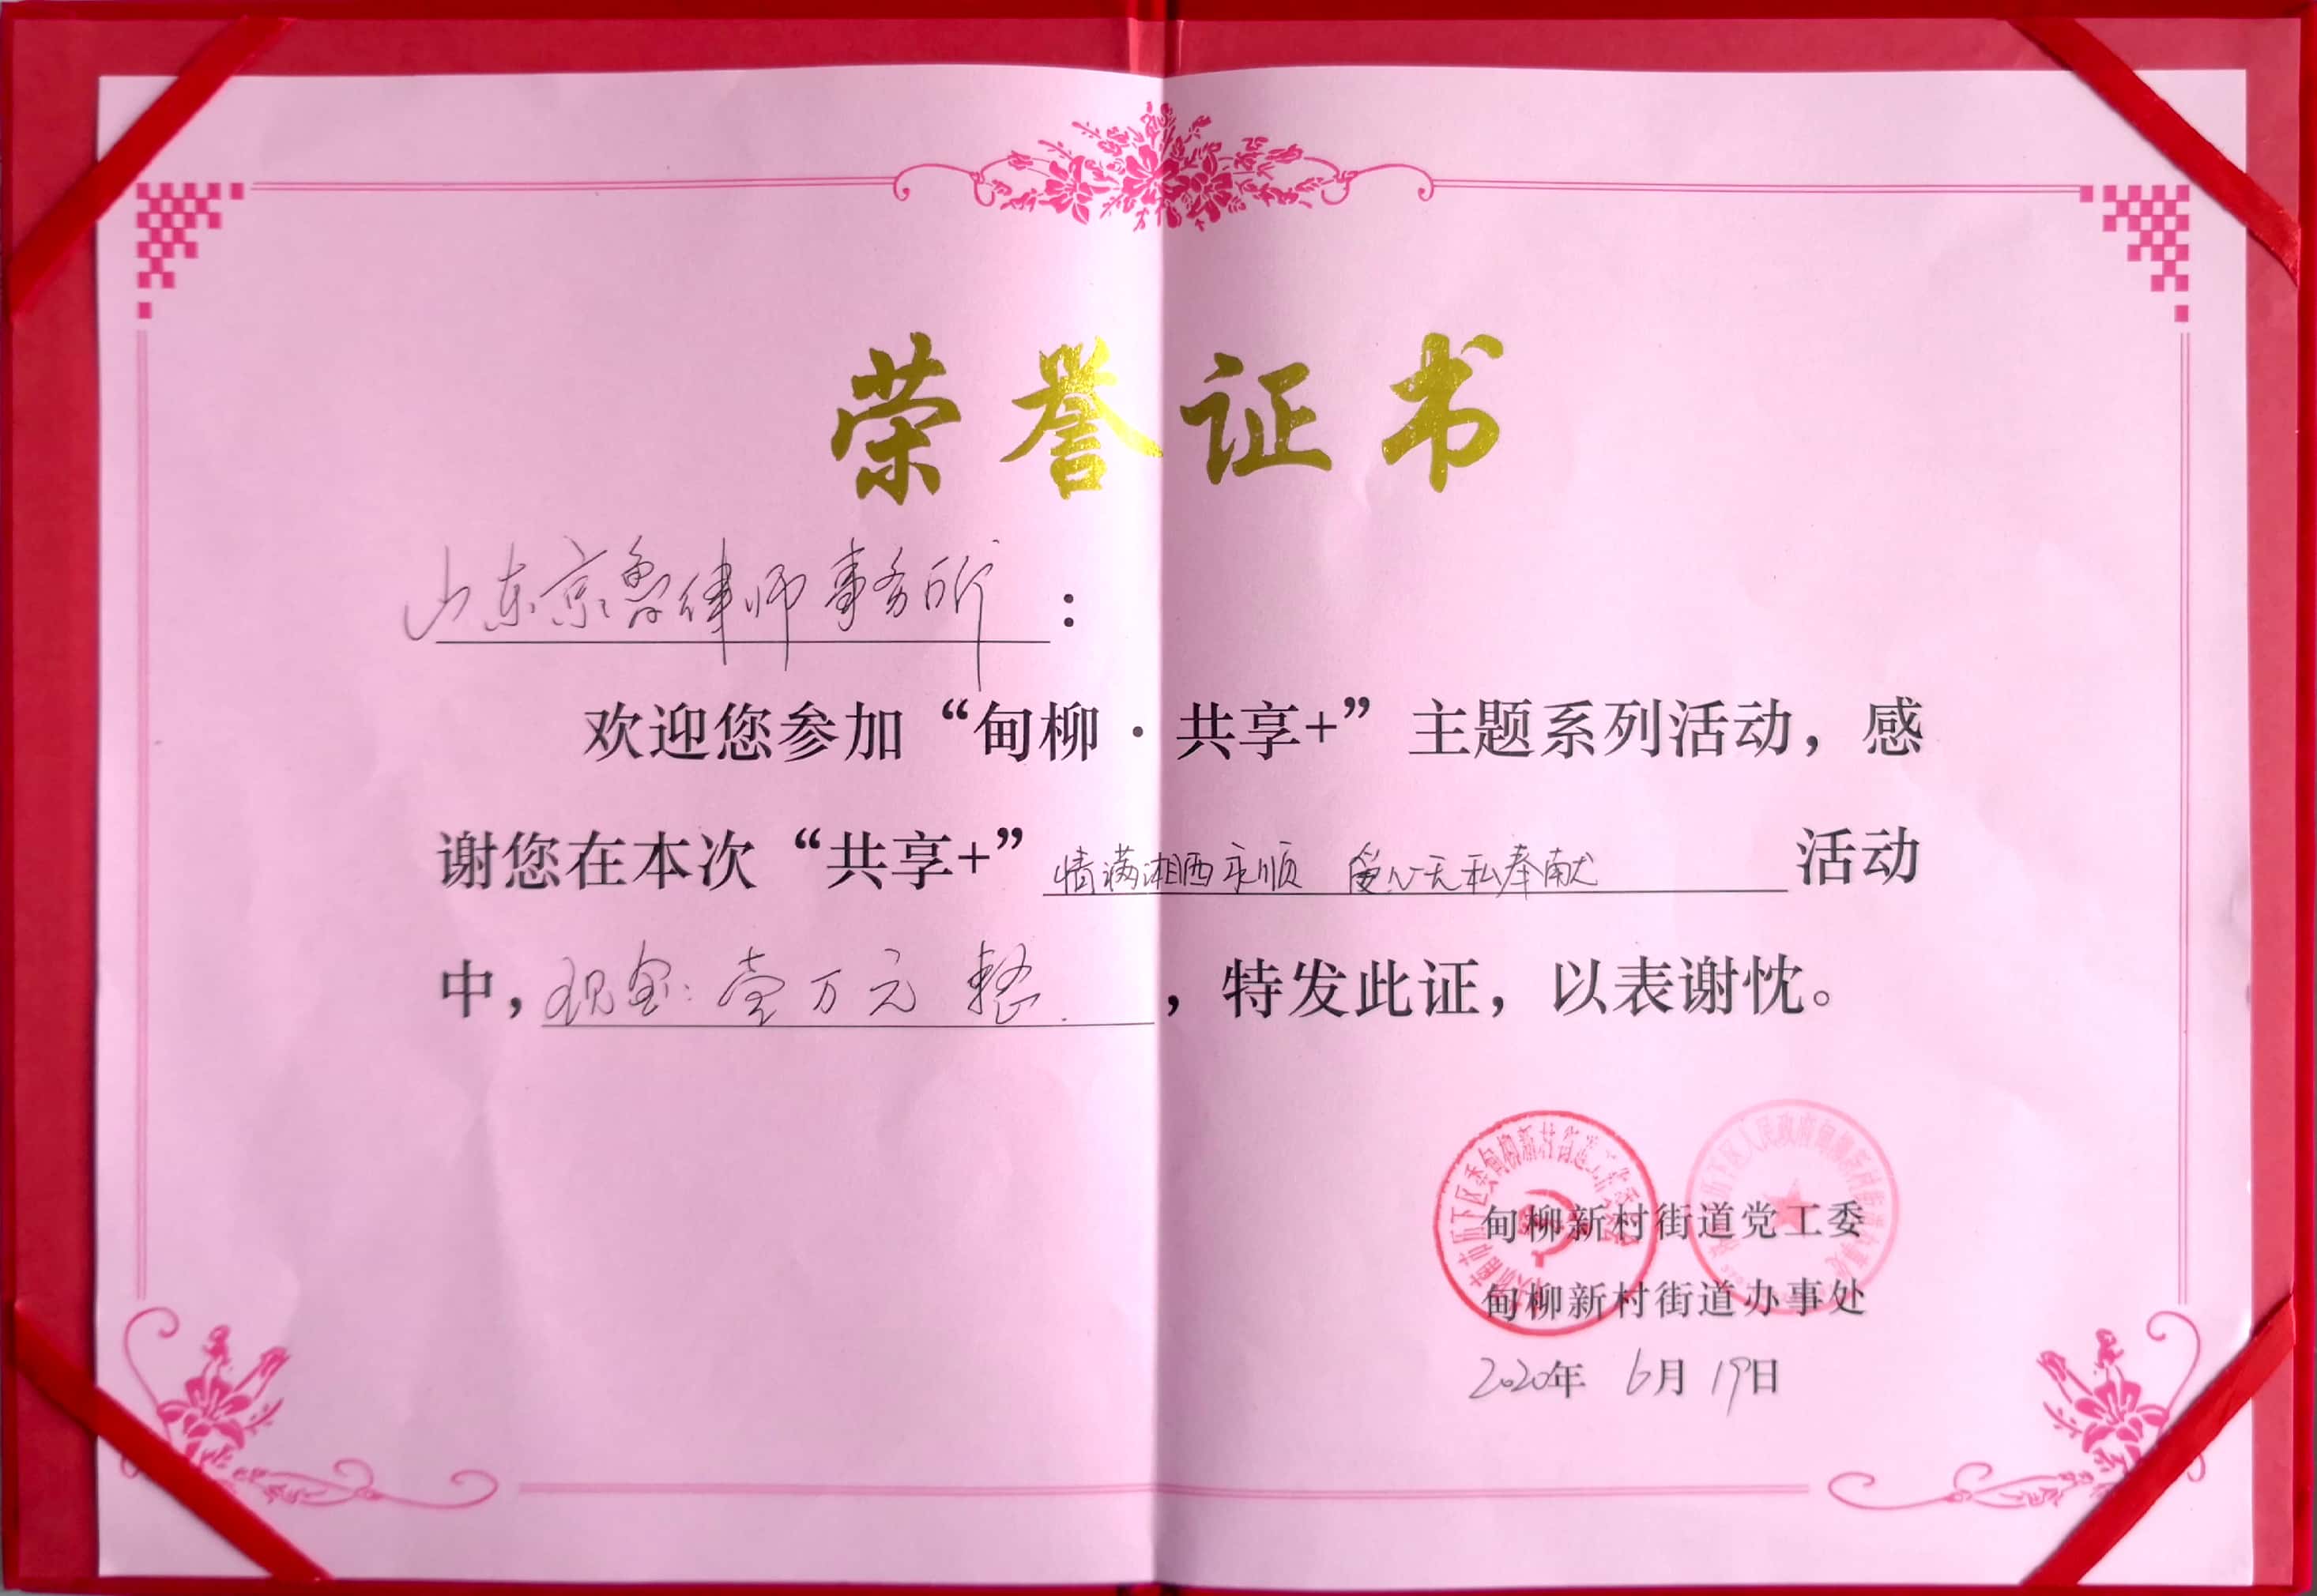 荣誉证书
山东京鲁律师事务所：
欢迎您参加“甸柳·共享+”主题系列活动，感
谢您在本次“共享+”情满湘西永顺 爱心无私奉献活动
中，现金：壹万元整.，特发此证，以表谢忱。
甸柳新村街道党工委
甸柳新村街道办事处
2020年 6月 19日